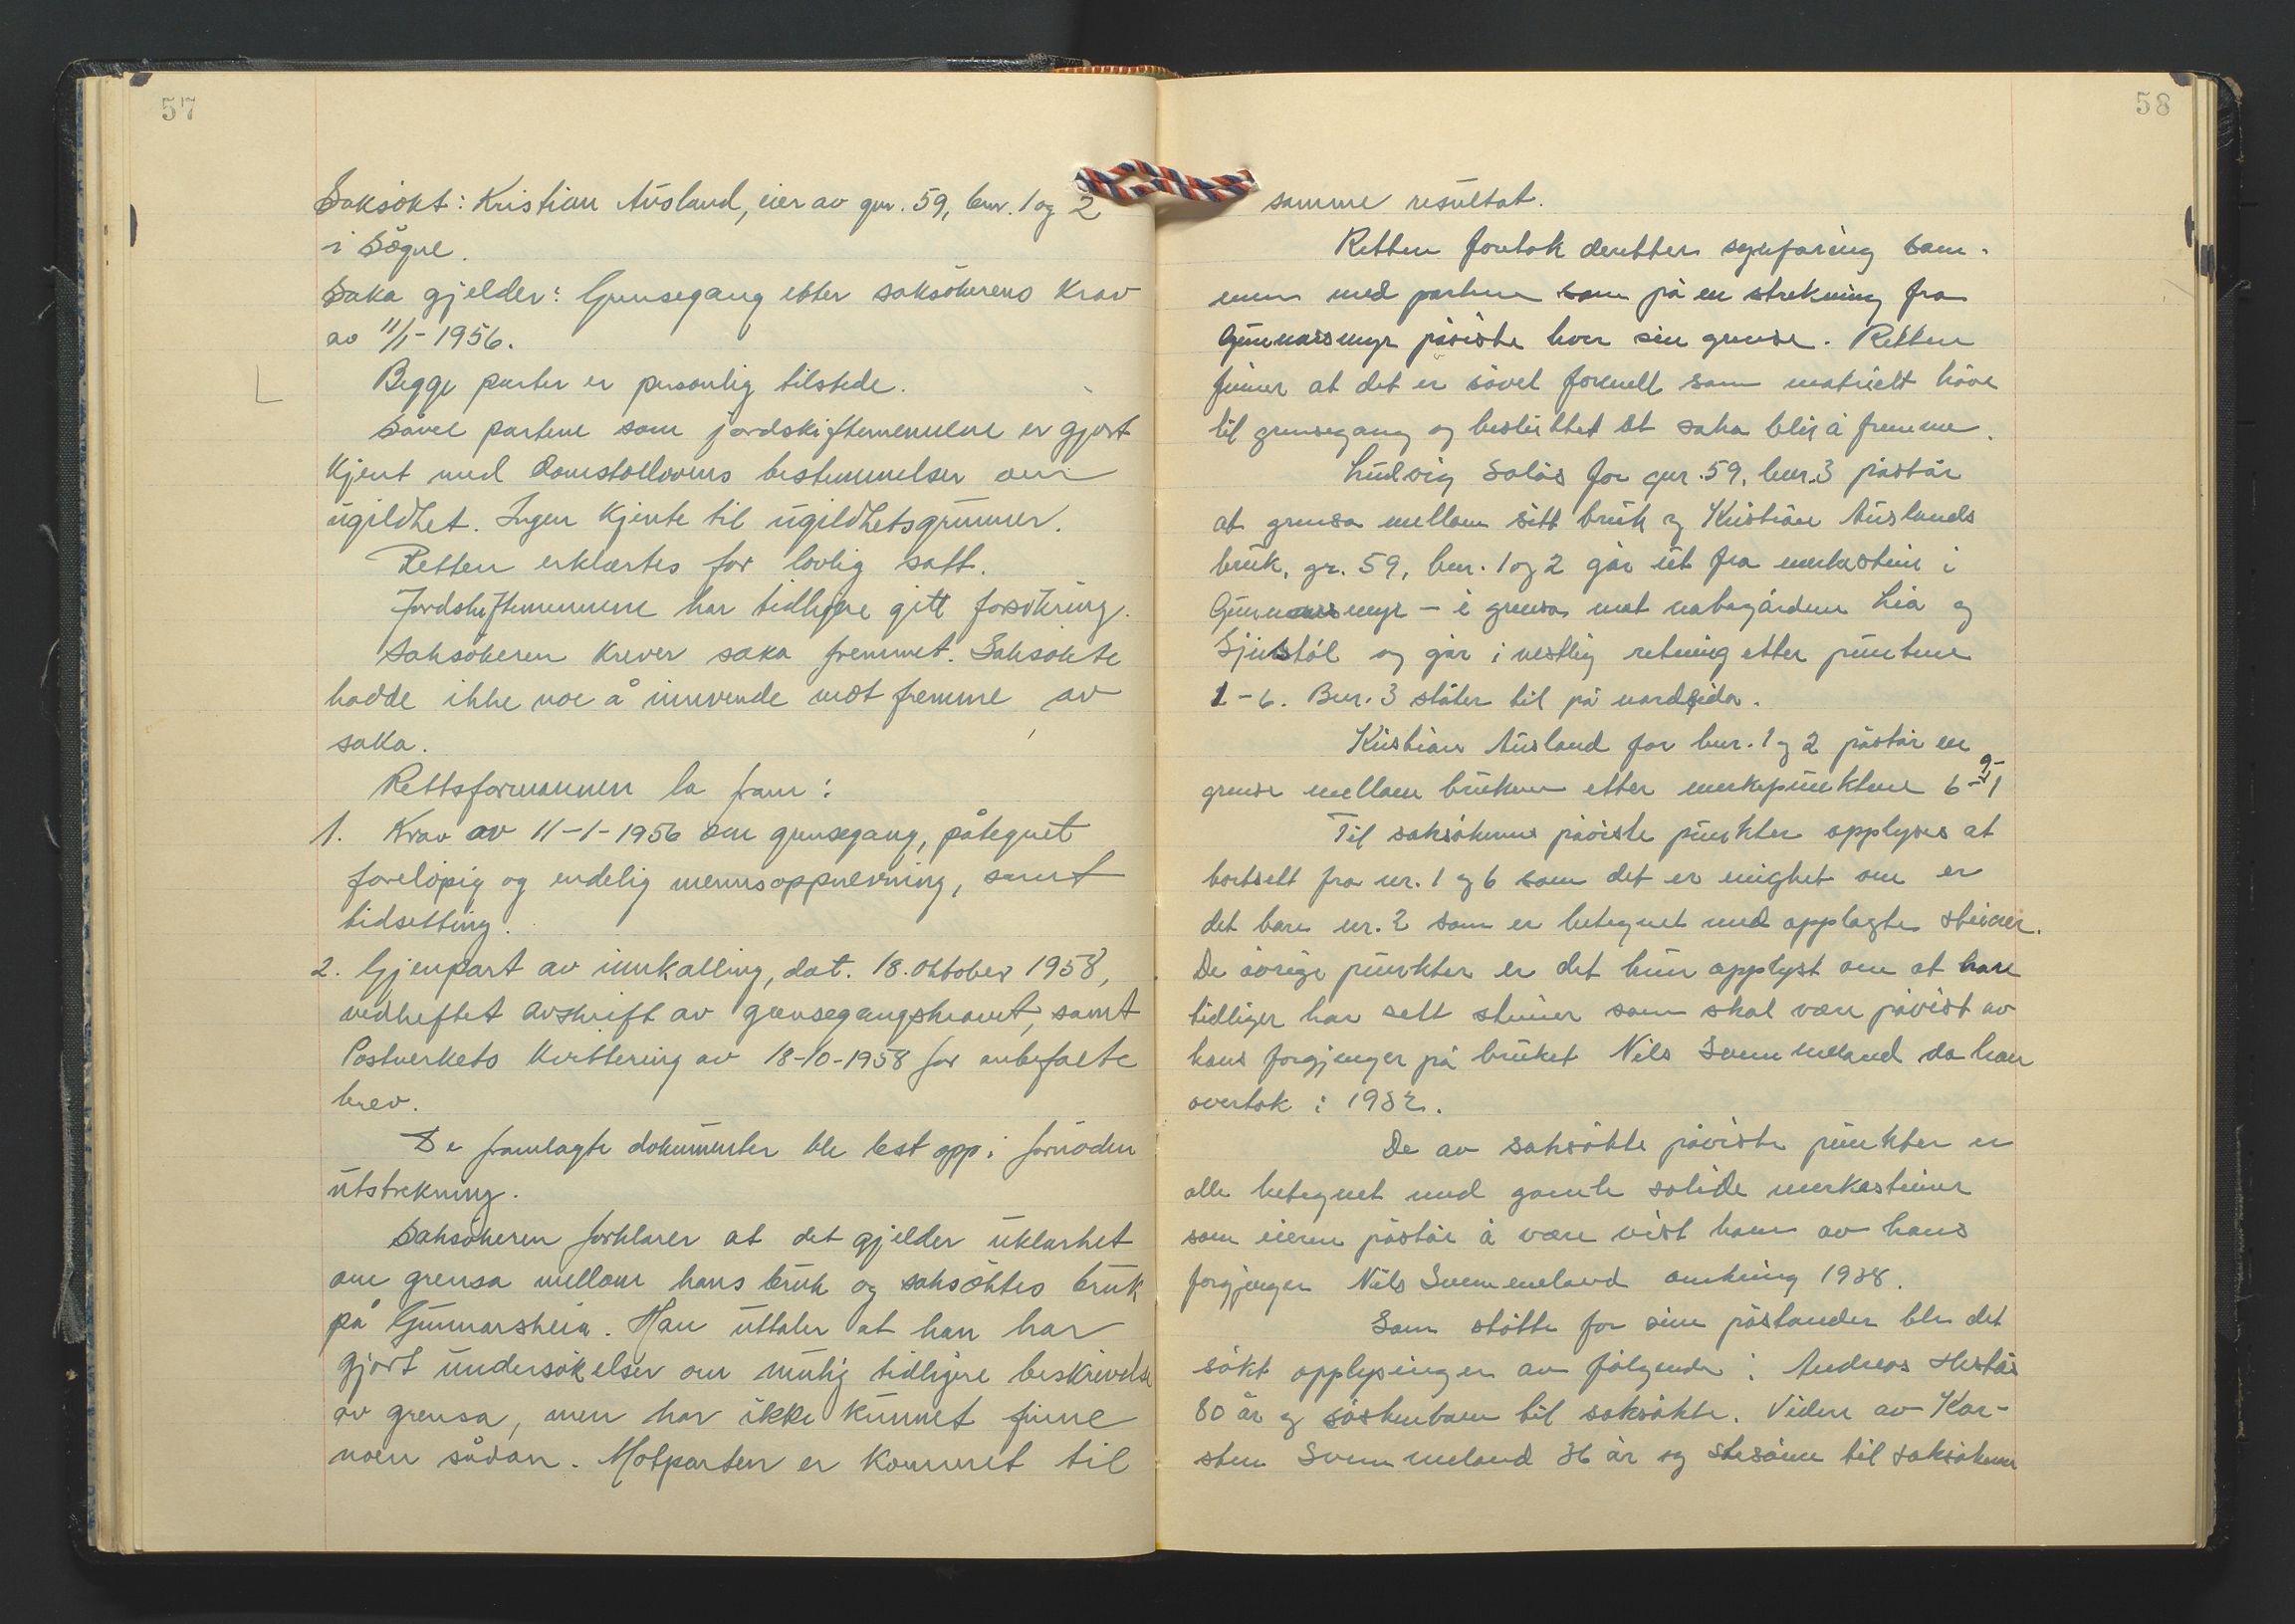 57
Saksökt: Kristian Ausland, eier av gnr. 59, bnr. 1 og 2
i Sögne.
Saka gjelder: Grensegang etter saksökerens krav
av 11/1-1956.
Begge parter er personlig tilstede.
Såvel partene som jordskiftemennene er gjort
kjent med domstollovens bestemmelser om
ugildhet. Ingen kjente til ugildhetsgrunner.
Retten erklærtes for lovlig satt.
Jordskiftemennene har tidligere gitt forsikring.
Saksökeren krever saka fremmet. Saksökte
hadde ikke noe å innvende mot fremme av
saka.
Rettsformannen la fram:
1. Krav av 11-1-1956 om grensegang, påtegnet
forelöpig og endelig mennsoppnevning, samt
tidsetting.
2. Gjenpart av innkalling, dat. 18. oktober 1958,
vedheftet avskrift av grensegangskravet, samt
Postverkets kvittering av 18-10-1958 for anbefalte
brev.
De framlagte dokumenter ble lest opp i fornöden
utstrekning.
Saksökeren forklarer at det gjelder uklarhet
om grensa mellom hans bruk og saksöktes bruk
på Gunnarsheia. Han uttaler at han har
gjort undersökelser om mulig tidligere beskrivelse
av grensa, men har ikke kunnet finne
noen sådan. Motparten er kommet til
58
samme resultat.
Retten foretok deretter synfaring sam-
men med partene som på en strekning fra
Gunnarsmyr påviste hver sin grense. Retten
finner at det er såvel formelt som matrielt höve
til grensegang og besluttet at saka blir å fremme.
Ludvig Solås for gnr. 59, bnr. 3 påstår
at grensa mellom sitt bruk og Kristian Auslands
bruk, gr. 59, bnr. 1 og 2 går ut fra merkestein i
Gunnarsmyr - i grensa mot nabogårdene Lia og
og går i vestlig retning etter punktene
1-6. Bnr. 3 stöter til på nordsida.
Kristian Ausland for bnr. 1 og 2 påstår en
grense mellom brukene etter merkepunktene 6-9-1
Til saksökerens påviste punkter opplyses at
bortsett fra nr. 1 og 6 som det er enighet om er
det bare nr. 2 som er betegnet med opplagte steiner.
De övrige punkter er det kun opplyst om at han
tidligere har sett steiner som skal være påvist av
hans forgjenger på bruket Nils Svennmeland da han
overtok i 1932.
De av saksökte påviste punkter er
alle betegnet med gamle solide merkesteiner
som eieren påstår å være vist ham av hans
forgjenger Nils Svennmeland omkring 1938.
Som stötte for sine påstander ble det
sökt opplysinger av fölgende: Andreas
80 år og söskenbarn til saksökte. Videre av Kar-
sten Svennmeland 36 år og stesönn til saksökeren